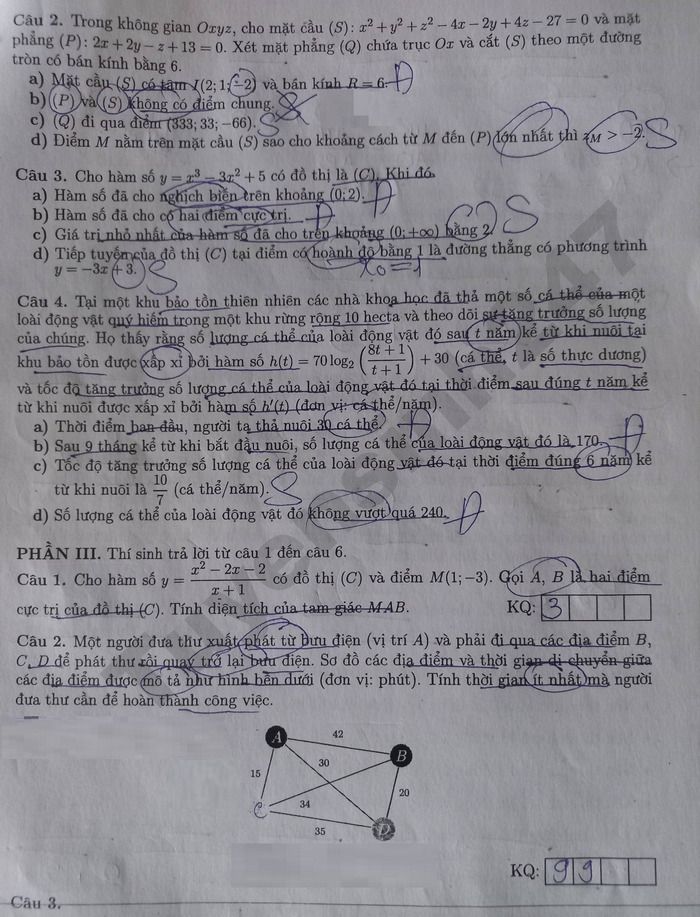 Câu 2. Trong không gian Oxyz, cho mặt cầu (S): x² + y² + z² − 4x − 2y + 4z − 27 = 0 và mặt
phẳng (P): 2x + 2y − z + 13 = 0. Xét mặt phẳng (Q) chứa trục Ox và cắt (S) theo một đường
tròn có bán kính bằng 6.
a) Mặt cầu (S) có tâm I(2; 1; −2) và bán kính R = 6. Đ
b) (P) và (S) không có điểm chung. S
c) (Q) đi qua điểm (333; 33; −66). S
d) Điểm M nằm trên mặt cầu (S) sao cho khoảng cách từ M đến (P) lớn nhất thì z_M > −2. S
Câu 3. Cho hàm số y = x³ − 3x² + 5 có đồ thị là (C). Khi đó
a) Hàm số đã cho nghịch biến trên khoảng (0; 2). Đ
b) Hàm số đã cho có hai điểm cực trị. Đ
c) Giá trị nhỏ nhất của hàm số đã cho trên khoảng (0; +∞) bằng 2. S
d) Tiếp tuyến của đồ thị (C) tại điểm có hoành độ bằng 1 là đường thẳng có phương trình
y = −3x + 3. S x₀ = 1
Câu 4. Tại một khu bảo tồn thiên nhiên các nhà khoa học đã thả một số cá thể của một
loài động vật quý hiếm trong một khu rừng rộng 10 hecta và theo dõi sự tăng trưởng số lượng
của chúng. Họ thấy rằng số lượng cá thể của loài động vật đó sau t năm kể từ khi nuôi tại
khu bảo tồn được xấp xỉ bởi hàm số h(t) = 70 log₂ ((8t + 1)/(t + 1)) + 30 (cá thể, t là số thực dương)
và tốc độ tăng trưởng số lượng cá thể của loài động vật đó tại thời điểm sau đúng t năm kể
từ khi nuôi được xấp xỉ bởi hàm số h′(t) (đơn vị: cá thể/năm).
a) Thời điểm ban đầu, người ta thả nuôi 30 cá thể. Đ
b) Sau 9 tháng kể từ khi bắt đầu nuôi, số lượng cá thể của loài động vật đó là 170. Đ
c) Tốc độ tăng trưởng số lượng cá thể của loài động vật đó tại thời điểm đúng 6 năm kể
từ khi nuôi là 10/7 (cá thể/năm). S
d) Số lượng cá thể của loài động vật đó không vượt quá 240. Đ
PHẦN III. Thí sinh trả lời từ câu 1 đến câu 6.
Câu 1. Cho hàm số y = (x² − 2x − 2)/(x + 1) có đồ thị (C) và điểm M(1; −3). Gọi A, B là hai điểm
cực trị của đồ thị (C). Tính diện tích của tam giác MAB. KQ: 3
Câu 2. Một người đưa thư xuất phát từ bưu điện (vị trí A) và phải đi qua các địa điểm B,
C, D để phát thư rồi quay trở lại bưu điện. Sơ đồ các địa điểm và thời gian di chuyển giữa
các địa điểm được mô tả như hình bên dưới (đơn vị: phút). Tính thời gian ít nhất mà người
đưa thư cần để hoàn thành công việc.
A
42
B
30
15
20
C
34
35
D
KQ: 99
Câu 3.